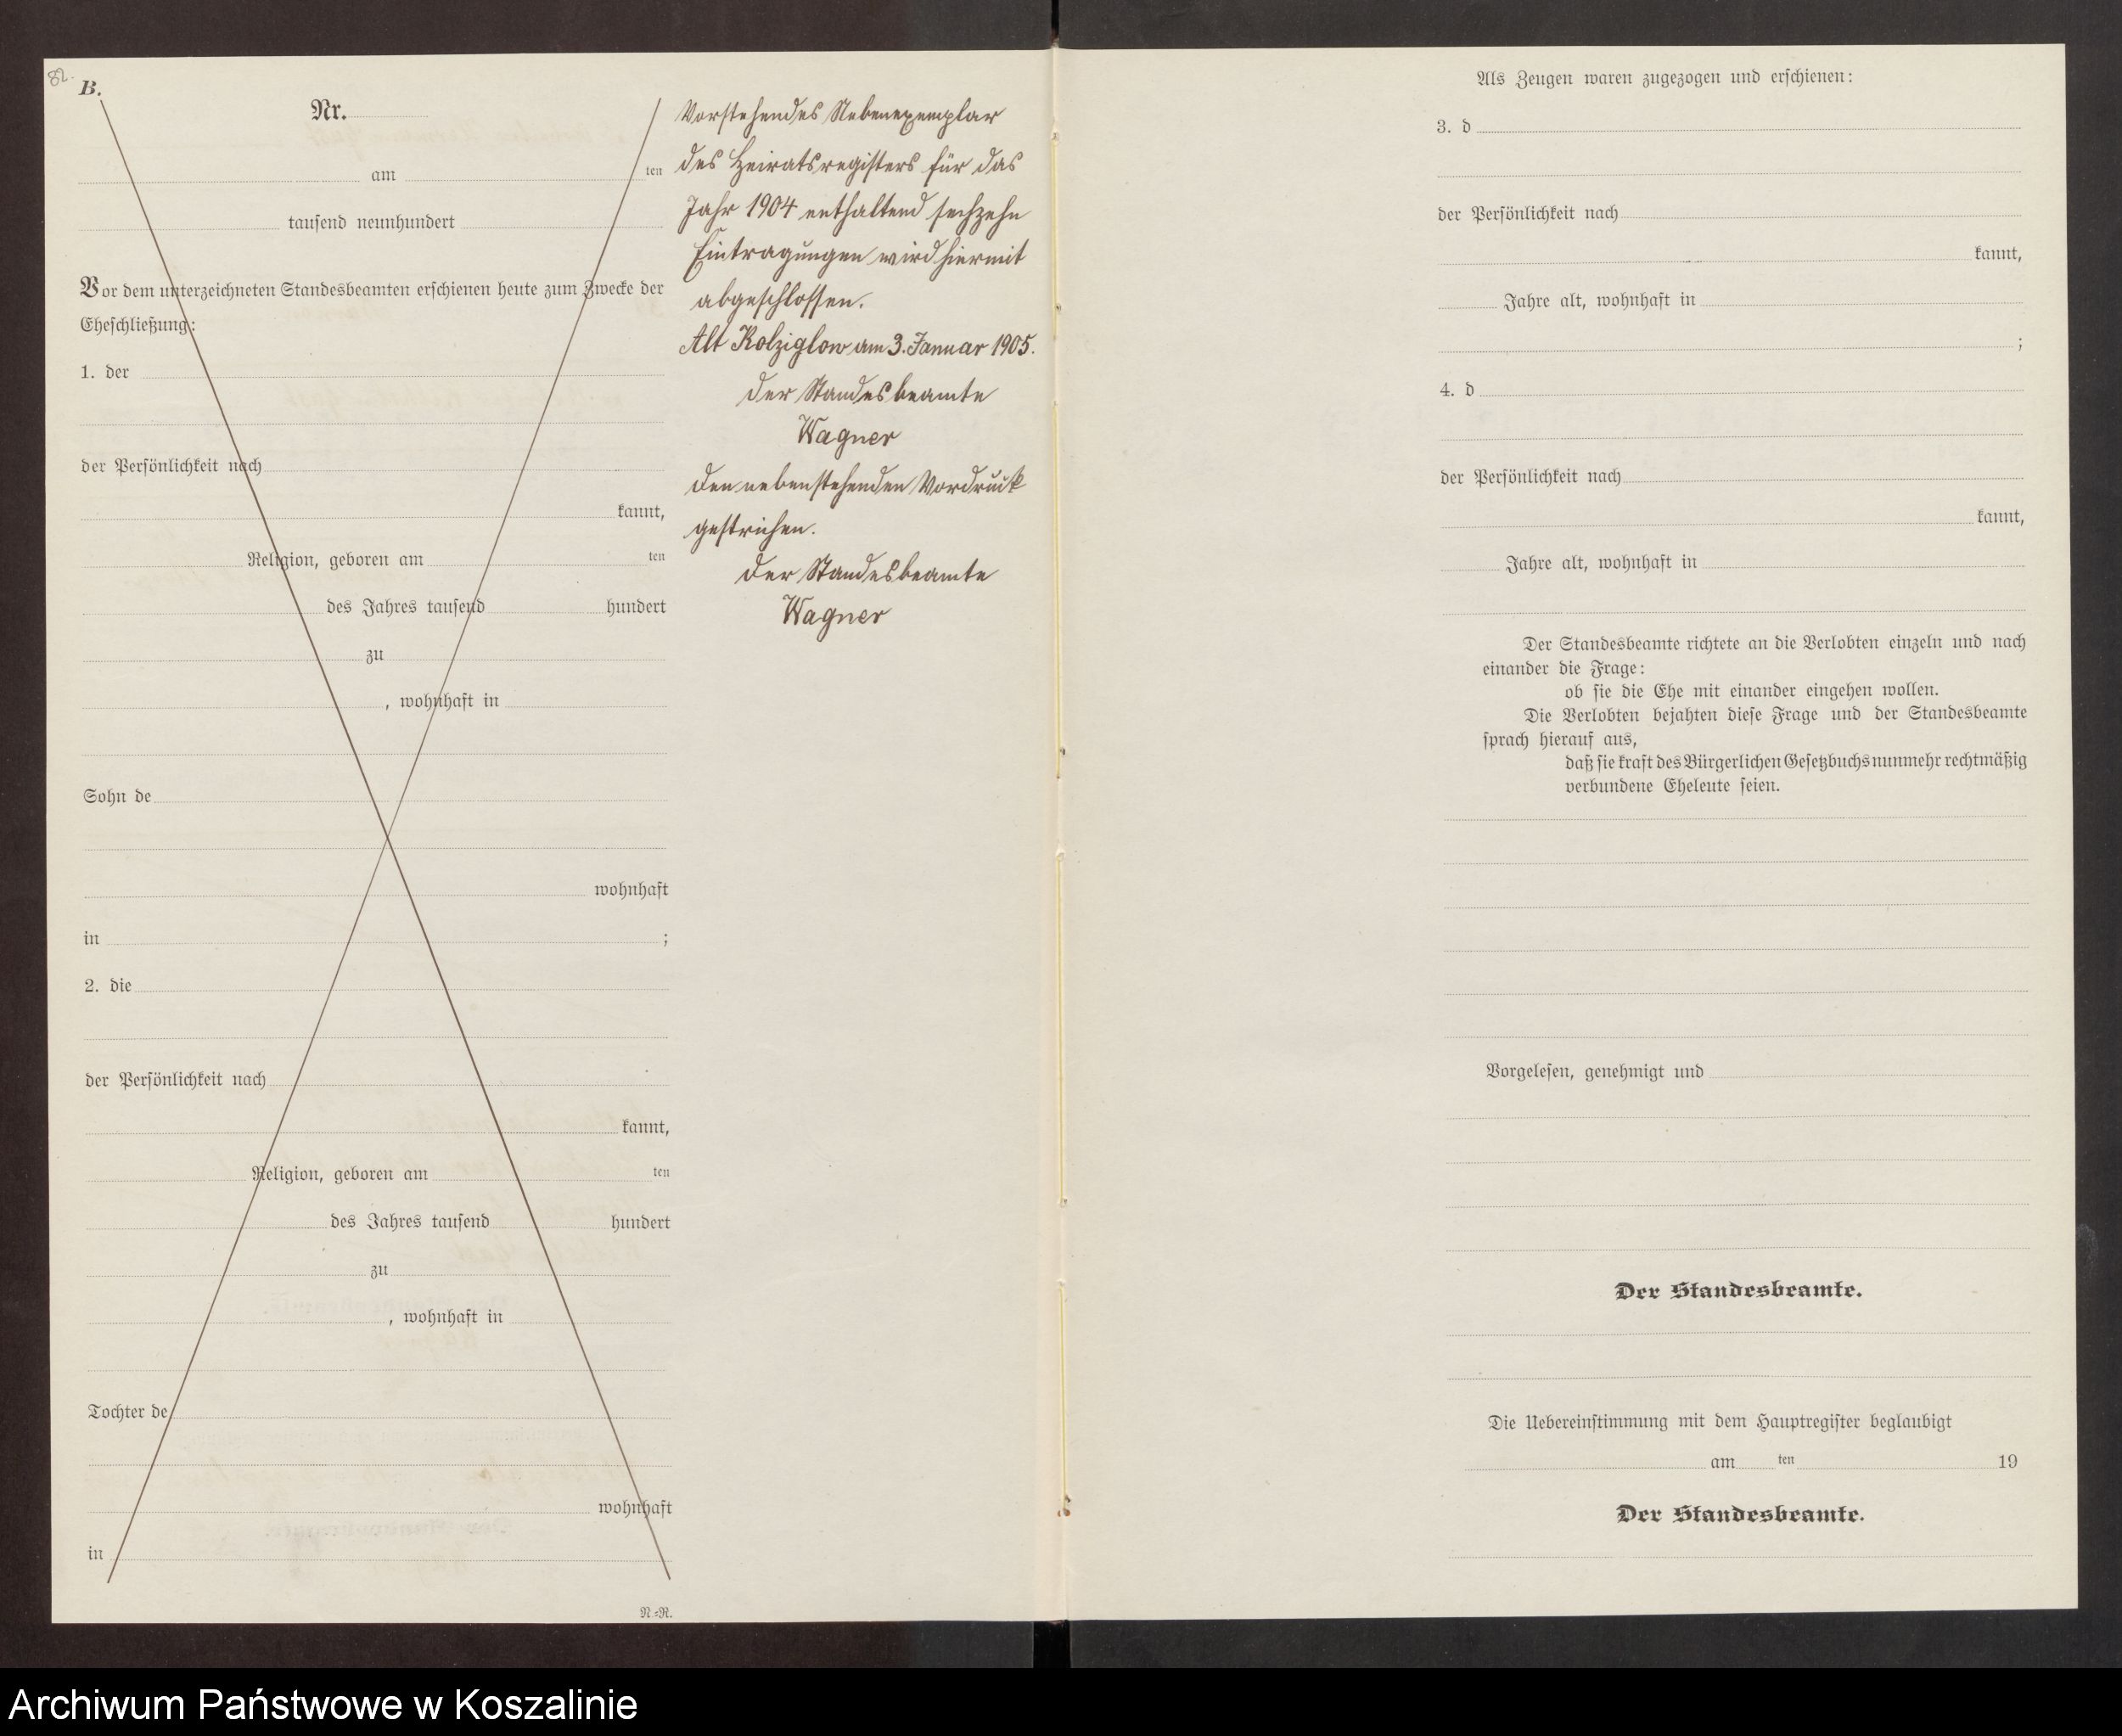 82.
B.
Nr.
am ten
tausend neunhundert
Vor dem unterzeichneten Standesbeamten erschienen heute zum Zwecke der
Eheschließung:
1. der
der Persönlichkeit nach
kannt,
Religion, geboren am ten
des Jahres tausend hundert
zu
, wohnhaft in
Sohn de
wohnhaft
in ;
2. die
der Persönlichkeit nach
kannt,
Religion, geboren am ten
des Jahres tausend hundert
zu
, wohnhaft in
Tochter de
wohnhaft
in
N.=R.
Vorstehendes Nebenexemplar
des Heiratsregisters für das
Jahr 1904 enthaltend sechzehn
Eintragungen wird hiermit
abgeschlossen.
Alt Kolziglow am 3. Januar 1905.
Der Standesbeamte
Wagner
Den nebenstehenden Vordruck
gestrichen.
Der Standesbeamte
Wagner
Als Zeugen waren zugezogen und erschienen:
3. d
der Persönlichkeit nach
kannt,
Jahre alt, wohnhaft in
;
4. d
der Persönlichkeit nach
kannt,
Jahre alt, wohnhaft in
Der Standesbeamte richtete an die Verlobten einzeln und nach
einander die Frage:
ob sie die Ehe mit einander eingehen wollen.
Die Verlobten bejahten diese Frage und der Standesbeamte
sprach hierauf aus,
daß sie kraft des Bürgerlichen Gesetzbuchs nunmehr rechtmäßig
verbundene Eheleute seien.
Vorgelesen, genehmigt und
Der Standesbeamte.
Die Uebereinstimmung mit dem Hauptregister beglaubigt
am ten 19
Der Standesbeamte.
Archiwum Państwowe w Koszalinie